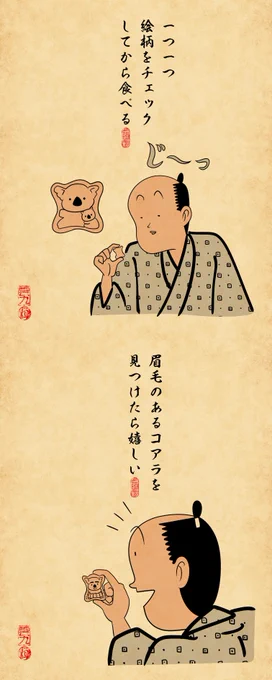 一つ一つ
絵柄をチェック
してから食べる
じ〜っ
眉毛のあるコアラを
見つけたら嬉しい